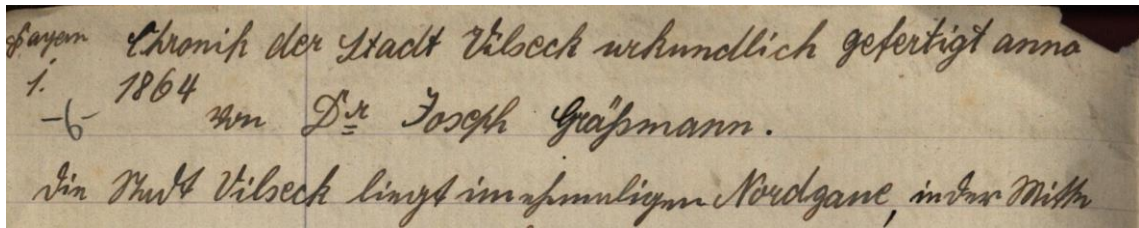 Bayern Chronik der Stadt Vilseck urkundlich gefertigt anno
1. 1864
-6- von Dr Joseph Gräßmann.
Die Stadt Vilseck liegt im ehemaligen Nordgaue, in der Mitte